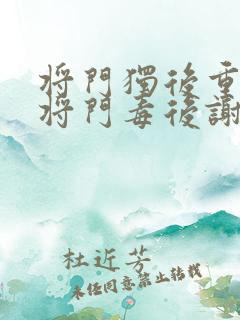 将門獨後重
将門毒後謝
杜近芳
未經同意禁止轉載